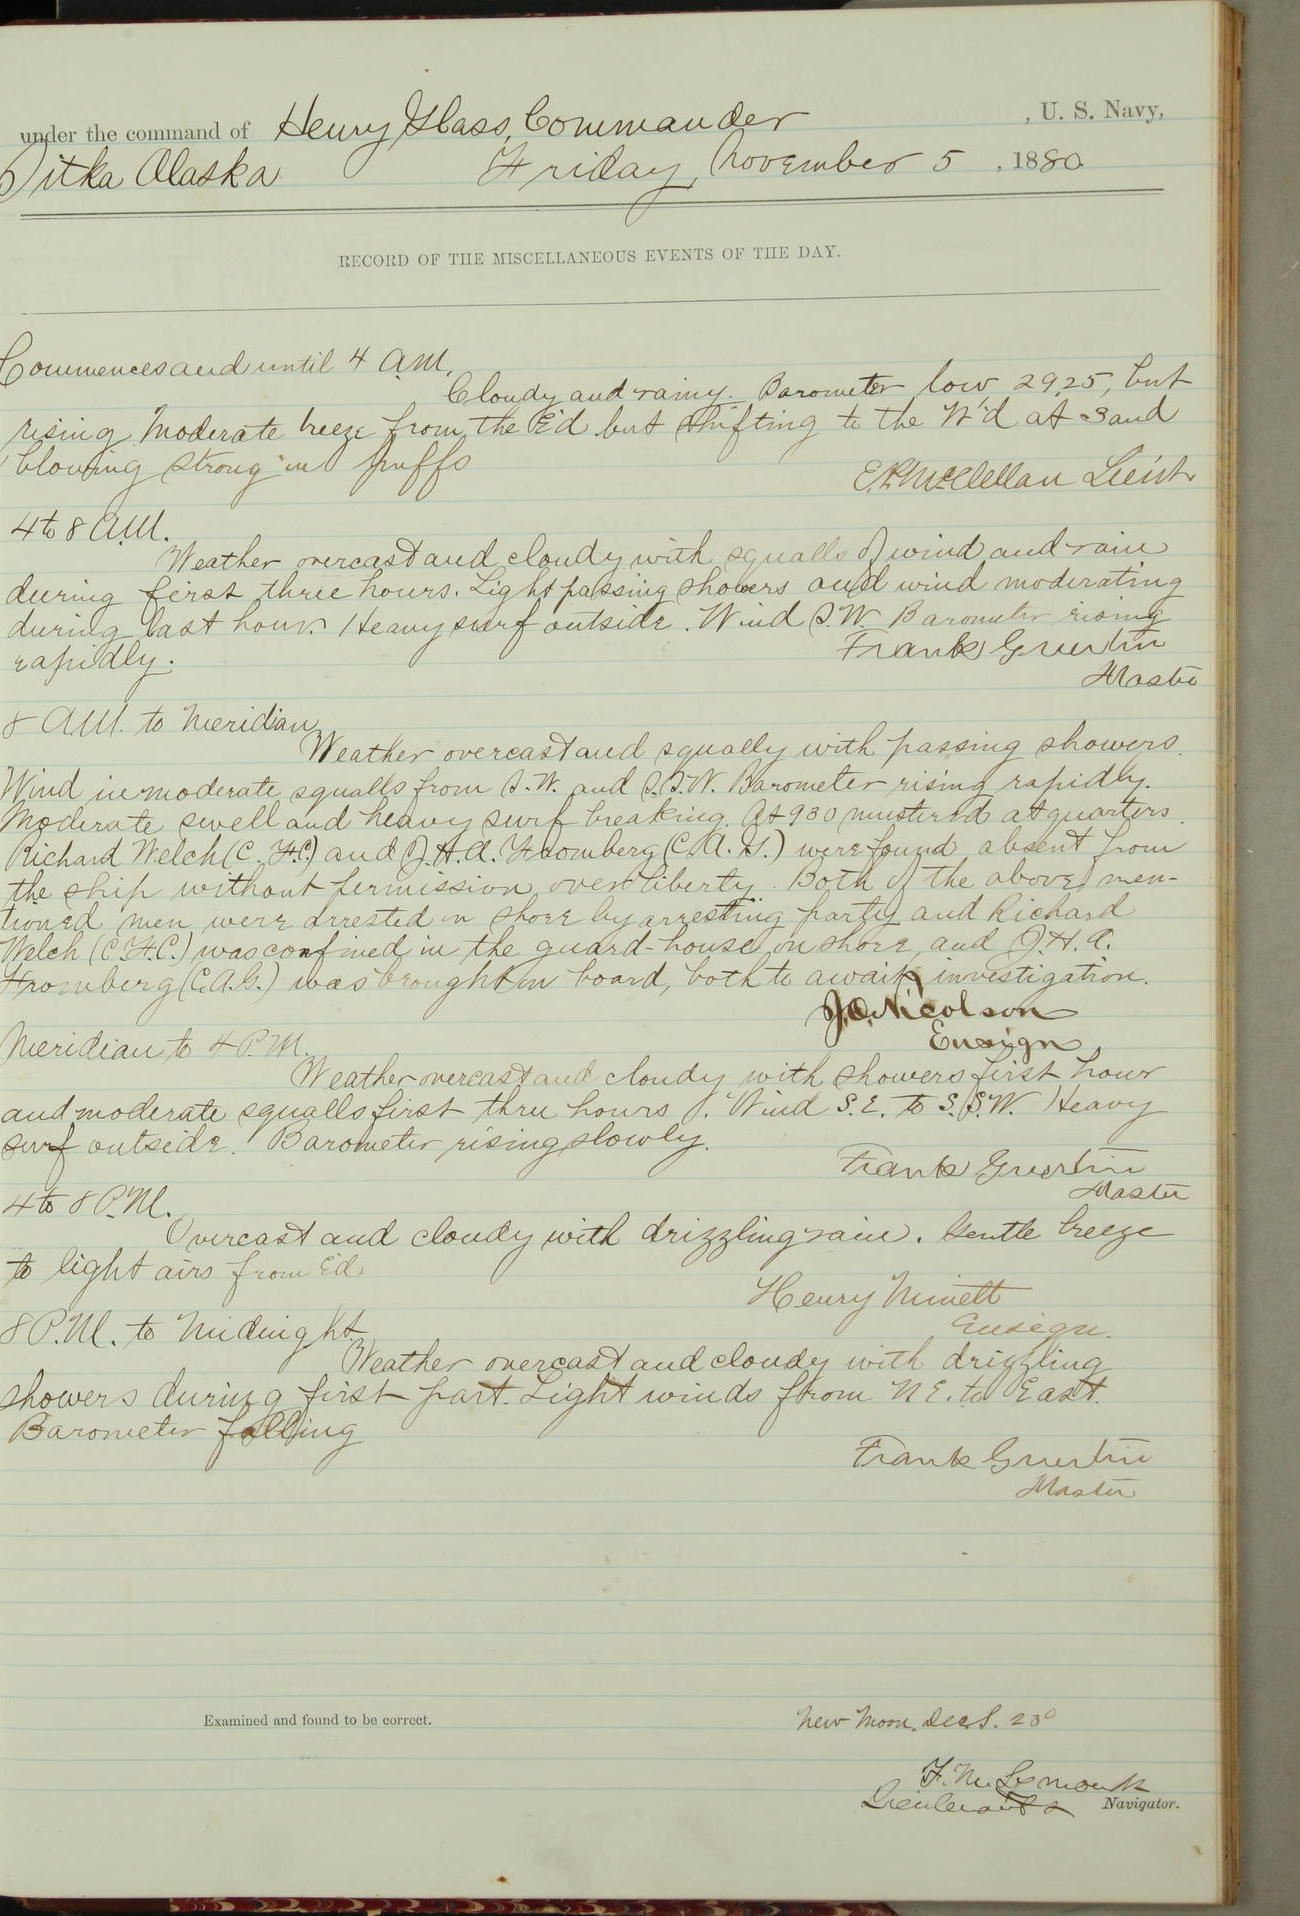 under the command of Henry Glass, Commander , U. S. Navy,
Sitka Alaska Friday, November 5 , 1880
RECORD OF THE MISCELLANEOUS EVENTS OF THE DAY.
Commences and until 4 A.M.
Cloudy and rainy. Barometer low 29.25, but
rising. Moderate breeze from the E'd but shifting to the W'd at 3 and
blowing strong in puffs
E.P. McClellan Lieut
4 to 8 A.M.
Weather overcast and cloudy with squalls of wind and rain
during first three hours. Light passing showers and wind moderating
during last hour. Heavy surf outside. Wind S.W. Barometer rising
rapidly.
Frank Guertin
Master
8 A.M. to Meridian
Weather overcast and squally with passing showers.
Wind in moderate squalls from S.W. and S.S.W. Barometer rising rapidly.
Moderate swell and heavy surf breaking. At 930 mustered at quarters.
Richard Welch (C.F.C.) and J.H.A. Fromberg (C.A.G.) were found absent from
the ship without permission, over liberty. Both of the above men-
tioned men were arrested on shore by arresting party and Richard
Welch (C.F.C.) was confined in the guard-house on shore, and J.H.A.
Fromberg (C.A.G.) was brought on board, both to await investigation.
J.O. Nicolson
Ensign
Meridian to 4 P.M.
Weather overcast and cloudy with showers first hour
and moderate squalls first three hours. Wind S.E. to S.S.W. Heavy
surf outside. Barometer rising slowly.
Frank Guertin
Master
4 to 8 P.M.
Overcast and cloudy with drizzling rain. Gentle breeze
to light airs from E'd.
Henry Minett
Ensign.
8 P.M. to Midnight
Weather overcast and cloudy with drizzling
showers during first part. Light winds from N.E. to East.
Barometer falling
Frank Guertin
Master
Examined and found to be correct.
New Moon. Dec S. 23°
F. M.
Lieutenant & Navigator.